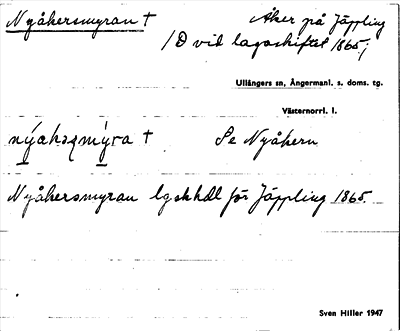 Nyåkersmyran † Åker på Jäppling
/D vid lagaskiftet 1865./
Ullångers sn, Ångermanl. s. doms. tg.
Västernorrl. l.
† Se Nyåkern
Nyåkersmyran lgskhdl för Jäppling 1865.
Sven Hiller 1947